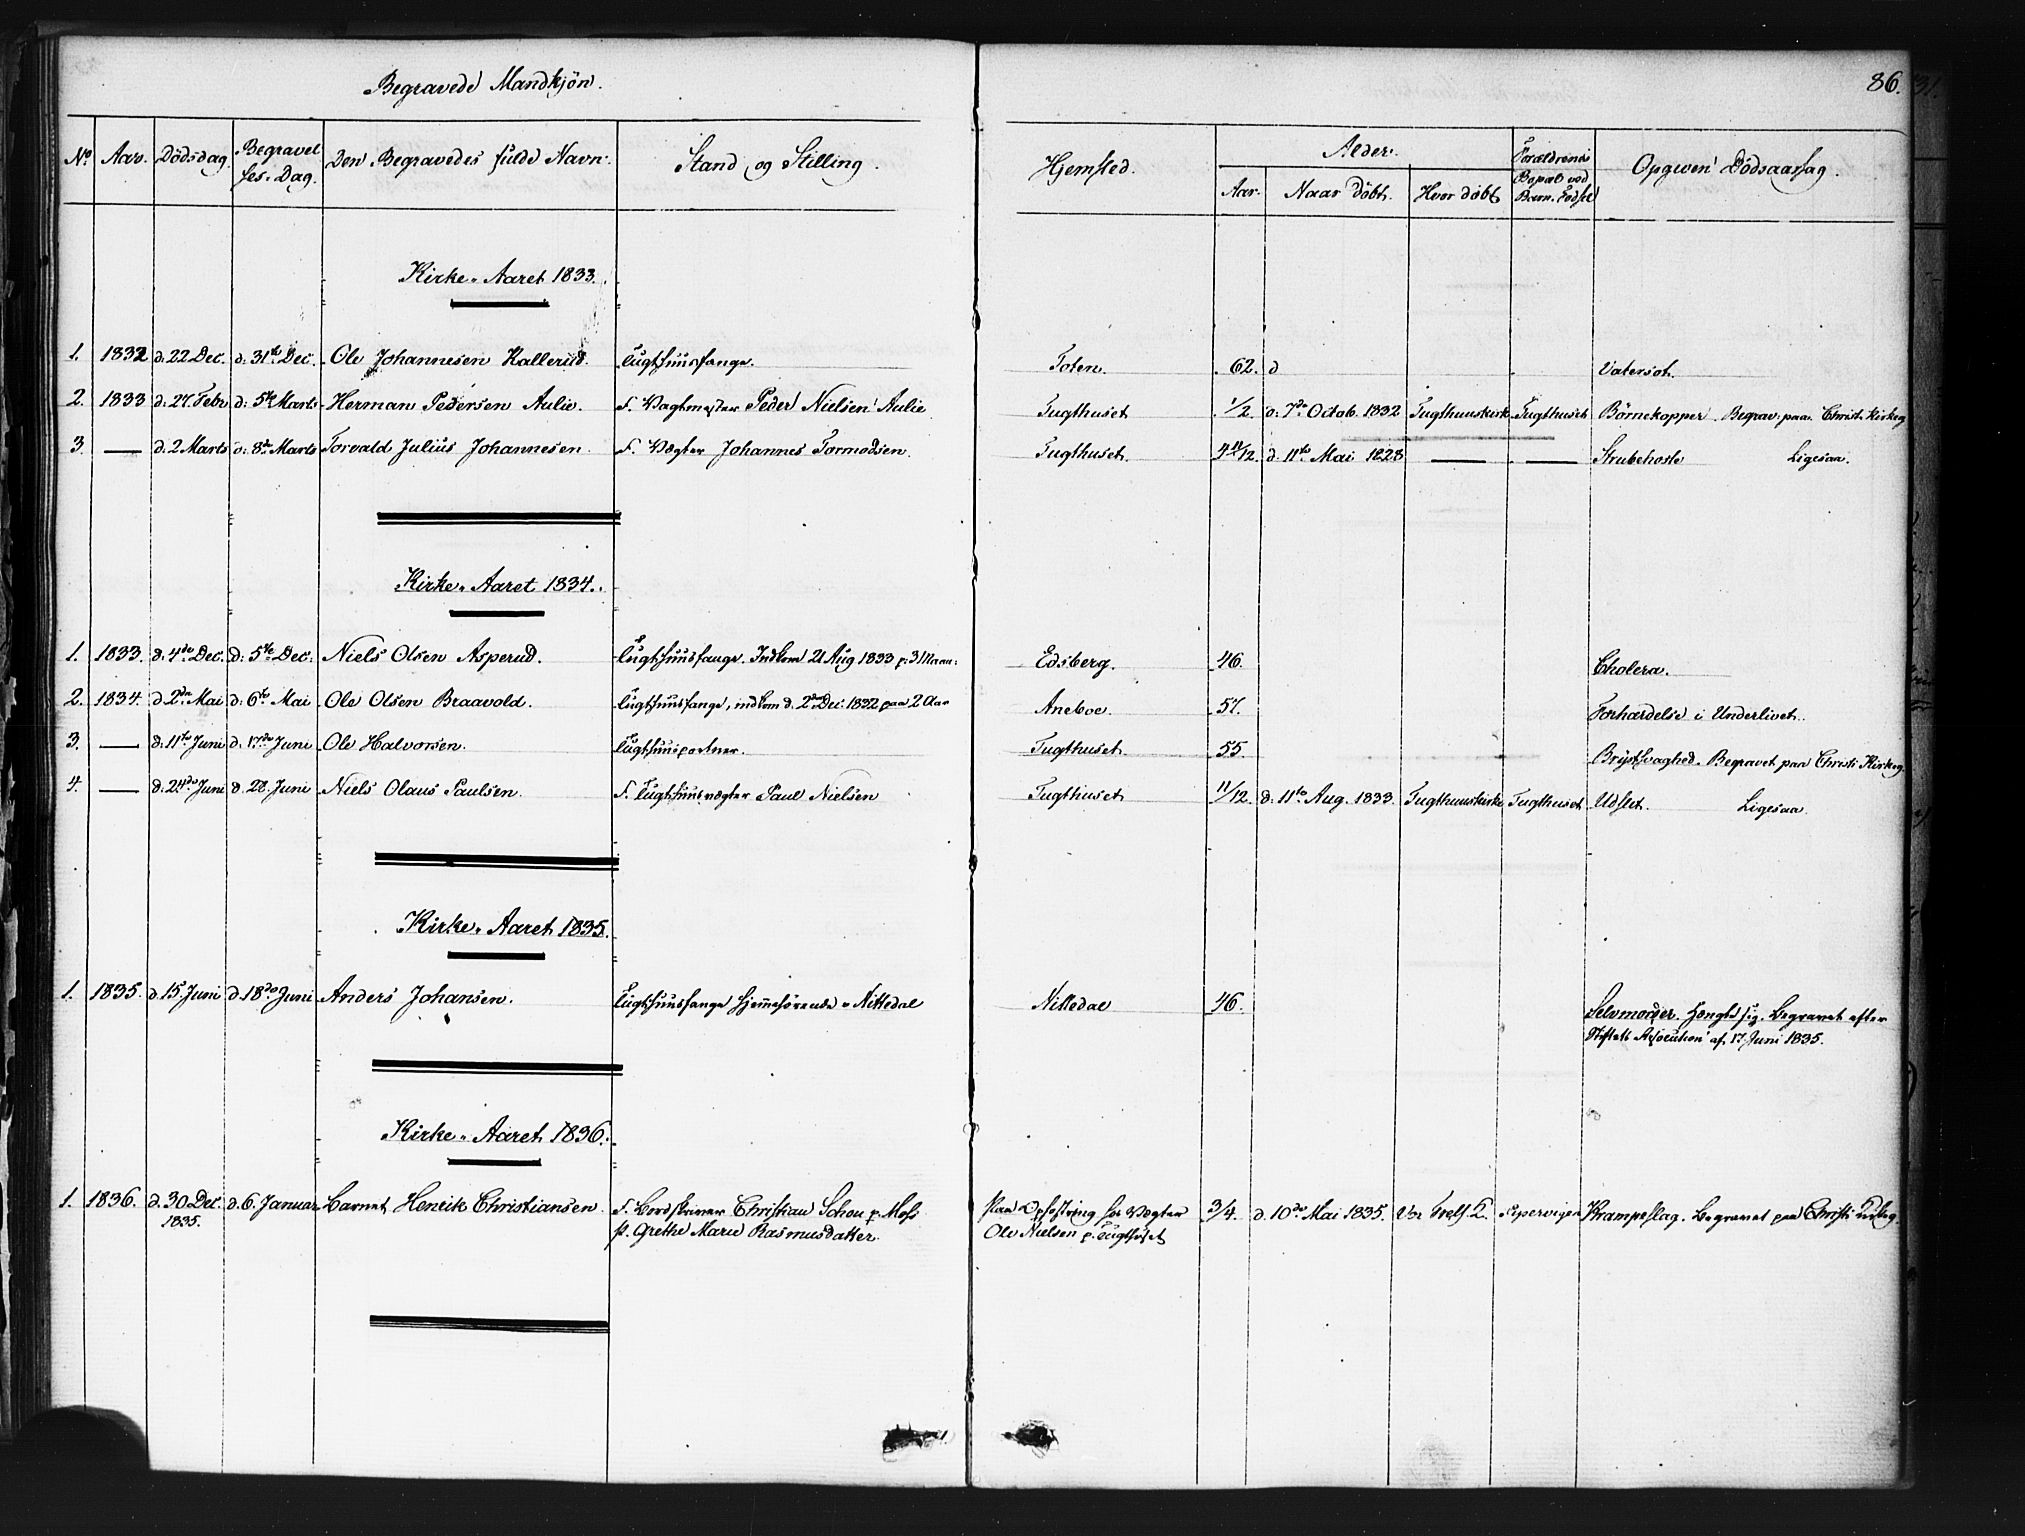 Begravede Mandkjön.
86.
No. Aar. Dödsdag. Begravelses-Dag. Den Begravedes fulde Navn. Stand og Stilling. Hjemsted. Alder. Aar. Naar döbt. Hvor döbt Forældrenes Bopæl ved Barn. Födsel Opgiven Dödsaarsag.
Kirke-Aaret 1833.
1. 1832 d. 22 Dec. d. 31te Dec. Ole Johannesen Kallerud. Tugthuusfange. Toten. 62. d Vatersot.
2. 1833 d. 27. Febr d. 5te Marts Herman Pedersen Aulie. F. Vagtmester Peder Nielsen Aulie Tugthuset 1/2 d. 7de Octob. 1832 Tugthuuskirk Tugthuset Börnekopper. Begrav. paa Christ. Kirkeg
3. — d. 2 Marts d. 8de Marts Torvald Julius Johannesen. F. Vægter Johannes Tormodsen. Tugthuset. 4 11/12. d. 11te Mai 1828 — — Strubehoste Ligesaa.
Kirke-Aaret 1834.
1. 1833. d. 4de Dec. d. 5te Dec. Niels Olsen Asperud. Tugthuusfange. Indkom 21 Aug 1833 p. 3 Maan: Edsberg. 46. Cholera.
2. 1834. d. 2den Mai d. 6te Mai Ole Olsen Braavold. Tugthuusfange, indkom d. 2den Dec. 1832 paa 2 Aar Aneboe. 57. Forhærdelse i Underlivet.
3. — d. 11te Juni d. 17de Juni Ole Halvorsen. Tugthuusportner. Tugthuset 55. Brystsvaghed. Begravet paa Christi Kirkeg
4. — d. 24de Juni d. 28. Juni Niels Olaus Paulsen. F. Tugthuusvægter Paul Nielsen Tugthuset 11/12. d. 11te Aug. 1833. Tugthuuskirke Tugthuset Udslet. Ligesaa.
Kirke-Aaret 1835.
1. 1835. d. 15. Juni d. 18de Juni Anders Johansen. Tugthuusfange hjemmehörende i Nittedal Nittedal 46. Selvmorder. Hængte sig. Begravet efter
Stiftets Resolution af 17 Juni 1835.
Kirke-Aaret 1836.
1. 1836. d. 30 Dec. d. 6. Januar Barnet Henrik Christiansen. F. Bordskriver Christian Schou p. Moss Paa Opfostring hos Vægter 3/4. d. 10de Mai 1835. Vor Frels. K. Pipervigen Krampeslag. Begravet paa Christi Kirkeg.
1835. P. Grethe Marie Rasmusdatter. Ole Nielsen p. Tugthuset